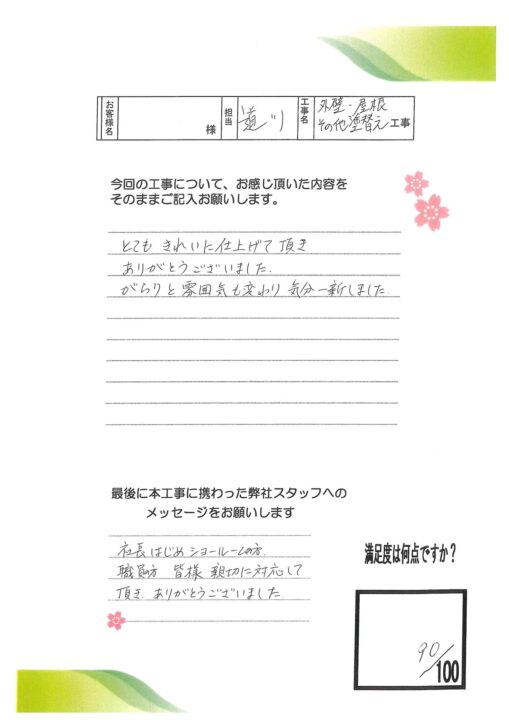 お客様名 様 担当 道川 工事名 外壁・屋根
その他塗替え工事
今回の工事について、お感じ頂いた内容を
そのままご記入お願いします。
とても きれいに仕上げて頂き
ありがとうございました.
がらりと雰囲気も変わり 気分一新しました.
最後に本工事に携わった弊社スタッフへの
メッセージをお願いします
社長はじめショールームの方.
職員方 皆様 親切に対応して
頂き.ありがとうございました
満足度は何点ですか?
90/100